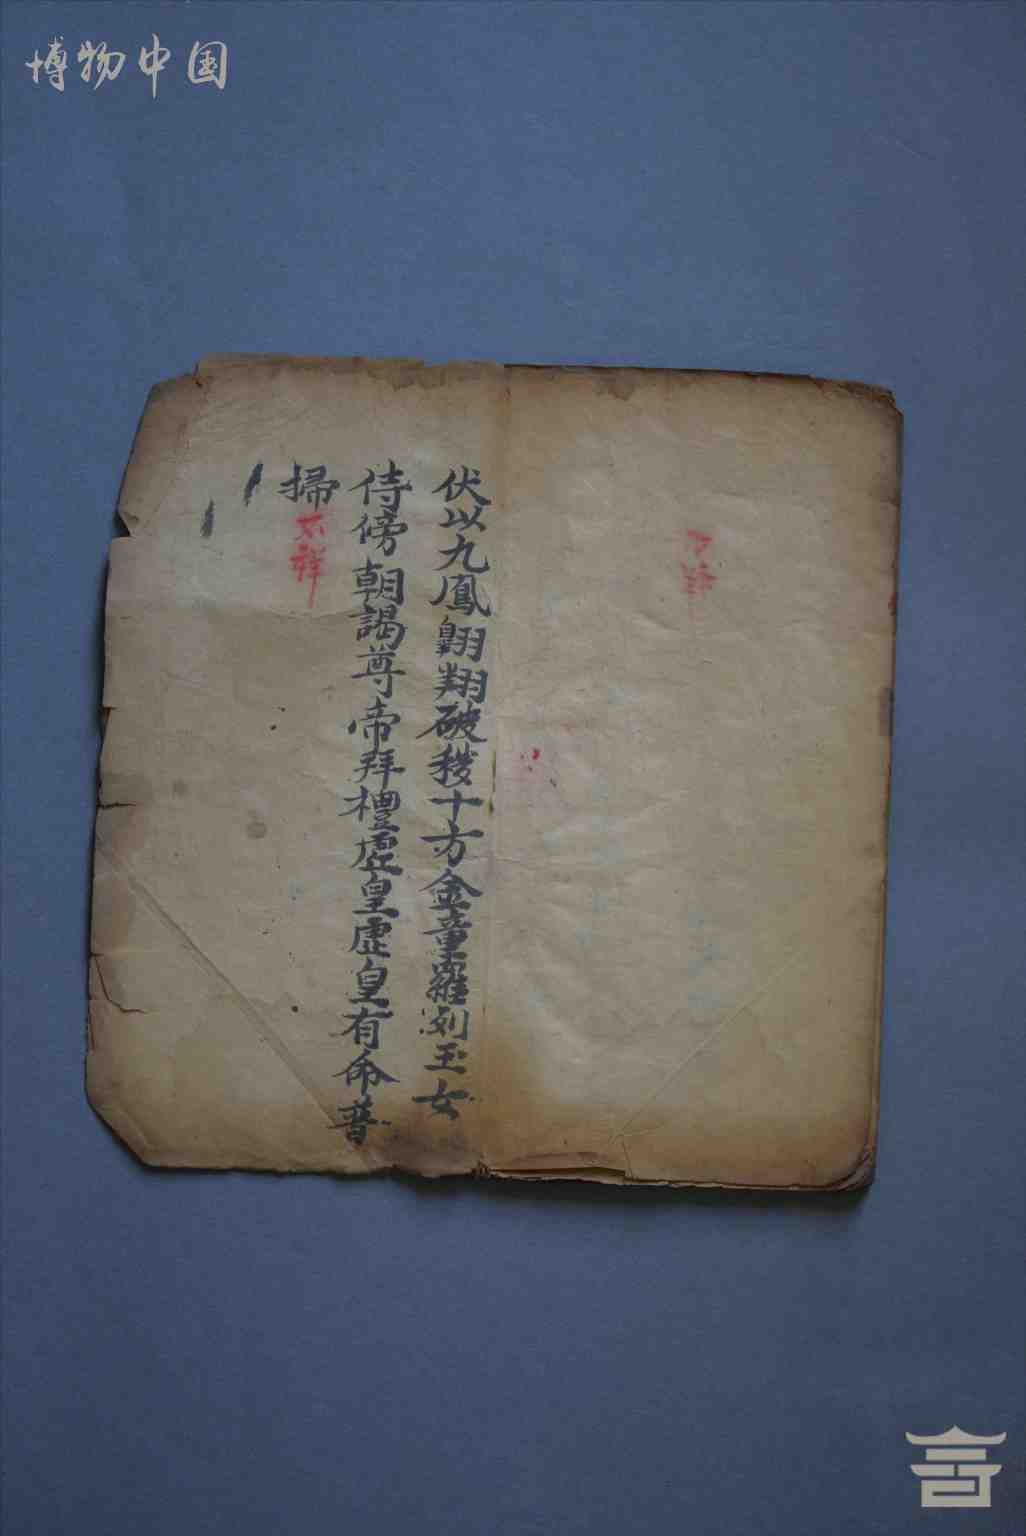 博物中国
伏以九鳳翱翔破穢十方金童羅列玉女
侍傍朝謁尊帝拜禮虛皇虛皇有命普
掃不祥